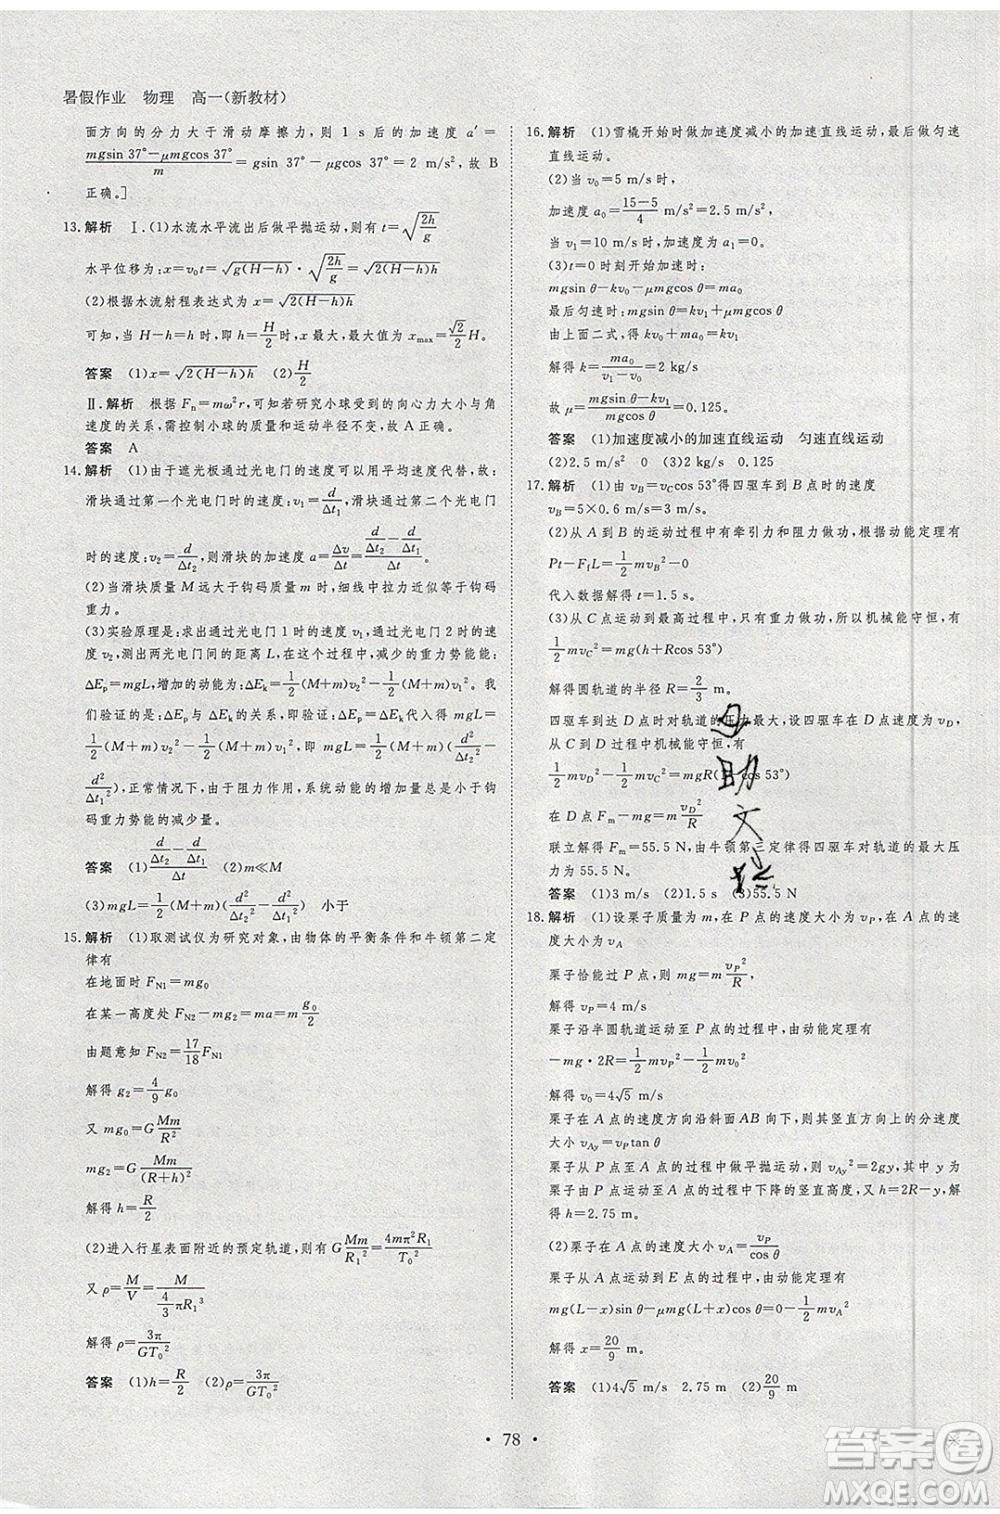 暑假作业 物理 高一(新教材)
面方向的分力大于滑动摩擦力,则 1 s 后的加速度 a′=
(mgsin 37°−μmgcos 37°)/m=gsin 37°−μgcos 37°=2 m/s²,故 B
正确。]
13. 解析 Ⅰ.(1)水流水平流出后做平抛运动,则有 t=√(2h/g)
水平位移为:x=v₀t=√(g(H−h))·√(2h/g)=√(2(H−h)h)
(2)根据水流射程表达式为 x=√(2(H−h)h)
可知,当 H−h=h 时,即 h=H/2 时,x 最大,最大值为 xmax=(√2/2)H
答案 (1)x=√(2(H−h)h) (2)H/2
Ⅱ.解析 根据 Fn=mω²r,可知若研究小球受到的向心力大小与角
速度的关系,需控制小球的质量和运动半径不变,故 A 正确。
答案 A
14. 解析 (1)由于遮光板通过光电门的速度可以用平均速度代替,故:
滑块通过第一个光电门时的速度:v₁=d/Δt₁;滑块通过第二个光电门
时的速度:v₂=d/Δt₂,则滑块的加速度 a=Δv/Δt=(d/Δt₂−d/Δt₁)/Δt。
(2)当滑块质量 M 远大于钩码质量 m 时,细线拉力近似等于钩码
重力。
(3)实验原理是:求出通过光电门 1 时的速度 v₁,通过光电门 2 时的速
度 v₂,测出两光电门间的距离 L,在这个过程中,减少的重力势能能:
ΔEp=mgL,增加的动能为:ΔEk=½(M+m)v₂²−½(M+m)v₁²。我
们验证的是:ΔEp与ΔEk的关系,即验证:ΔEp=ΔEk代入得 mgL=
½(M+m)v₂²−½(M+m)v₁²,即 mgL=½(M+m)(d²/Δt₂²−
d²/Δt₁²),正常情况下,由于阻力作用,系统动能的增加量会小于钩
码重力势能的减少量。
答案 (1)(d/Δt₂−d/Δt₁)/Δt (2)m≪M
(3)mgL=½(M+m)(d²/Δt₂²−d²/Δt₁²) 小于
15. 解析 (1)取测试仪为研究对象,由物体的平衡条件和牛顿第二定
律有
在地面时 FN1=mg₀
在某一高度处 FN2−mg₂=ma=m g₀/2
由题意知 FN2=(17/18)FN1
解得 g₂=(4/9)g₀
又 mg₀=G Mm/R²
mg₂=G Mm/(R+h)²
解得 h=R/2
(2)进入行星表面附近的预定轨道,则有 G Mm/R₁²=4mπ²R₁/T₀²
又 ρ=M/V=M/((4/3)πR₁³)
解得 ρ=3π/(GT₀²)
答案 (1)h=R/2 (2)ρ=3π/(GT₀²)
16. 解析 (1)雪橇开始时做加速度减小的加速直线运动,最后做匀速
直线运动。
(2)当 v₀=5 m/s 时,
加速度 a₀=(15−5)/4 m/s²=2.5 m/s²,
当 v₁=10 m/s 时,加速度 a₁=0。
(3)t=0 时刻开始加速时:
mgsin θ−kv₀−μmgcos θ=ma₀
最后匀速时:mgsin θ=kv₁+μmgcos θ
由上面二式,得 kv₁−kv₀=ma₀
解得 k=ma₀/(v₁−v₀)=2 kg/s
故 μ=(mgsin θ−kv₁)/(mgcos θ)=0.125。
答案 (1)加速度减小的加速直线运动 匀速直线运动
(2)2.5 m/s² 0 (3)2 kg/s 0.125
17. 解析 (1)由 vB=vCcos 53°得四驱车到 B 点时的速度
vB=5×0.6 m/s=3 m/s。
(2)从 A 到 B 的运动过程中有牵引力和阻力做功,根据动能定理有
Pt−FfL=½mvB²−0
代入数据解得 t=1.5 s。
(3)从 C 点运动到最高过程中,只有重力做功,所以机械能守恒,有
½mvC²=mg(h+R+Rcos 53°)
解得圆轨道的半径 R=2/3 m。
四驱车到达 D 点时对轨道的压力最大,设四驱车在 D 点速度为 vD,
从 C 到 D 过程中机械能守恒,有
½mvD²−½mvC²=mgR(1−cos 53°)
在 D 点 Fm−mg=m vD²/R
联立解得 Fm=55.5 N,由牛顿第三定律得四驱车对轨道的最大压
力为 55.5 N。
答案 (1)3 m/s (2)1.5 s (3)55.5 N
18. 解析 (1)设栗子质量为 m,在 P 点的速度大小为 vP,在 A 点的速
度大小为 vA
栗子恰能过 P 点,则 mg=m vP²/R,
解得 vP=4 m/s
栗子沿半圆轨道运动至 P 点的过程中,由动能定理有
−mg·2R=½mvP²−½mv₀²
解得 v₀=4√5 m/s
栗子在 A 点的速度方向沿斜面 AB 向下,则其竖直方向上的分速度
大小 vAy=vPtan θ
栗子从 P 点至 A 点的过程中做平抛运动,则 vAy²=2gy,其中 y
为栗子从 P 点运动至 A 点的过程中下降的竖直高度,又 h=2R−y,
解得 h=2.75 m。
(2)栗子在 A 点的速度大小 vA=vP/cos θ
栗子从 A 点运动到 E 点的过程中,由动能定理有
mg(L−x)sin θ−μmg(L+x)cos θ=0−½mvA²
解得 x=20/9 m。
答案 (1)4√5 m/s 2.75 m (2)20/9 m
• 78 •
答案圈
MXQE.COM